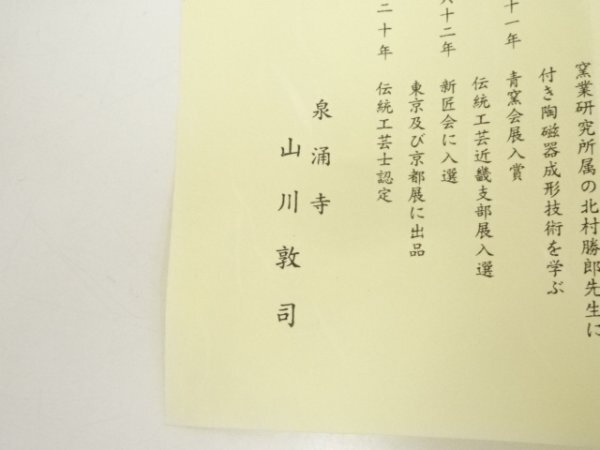 窯業研究所属の北村勝郎先生に
付き陶磁器成形技術を学ぶ
十一年 青窯会展入賞
伝統工芸近畿支部展入選
六十二年 新匠会に入選
東京及び京都展に出品
二十年 伝統工芸士認定
泉涌寺
山川敦司